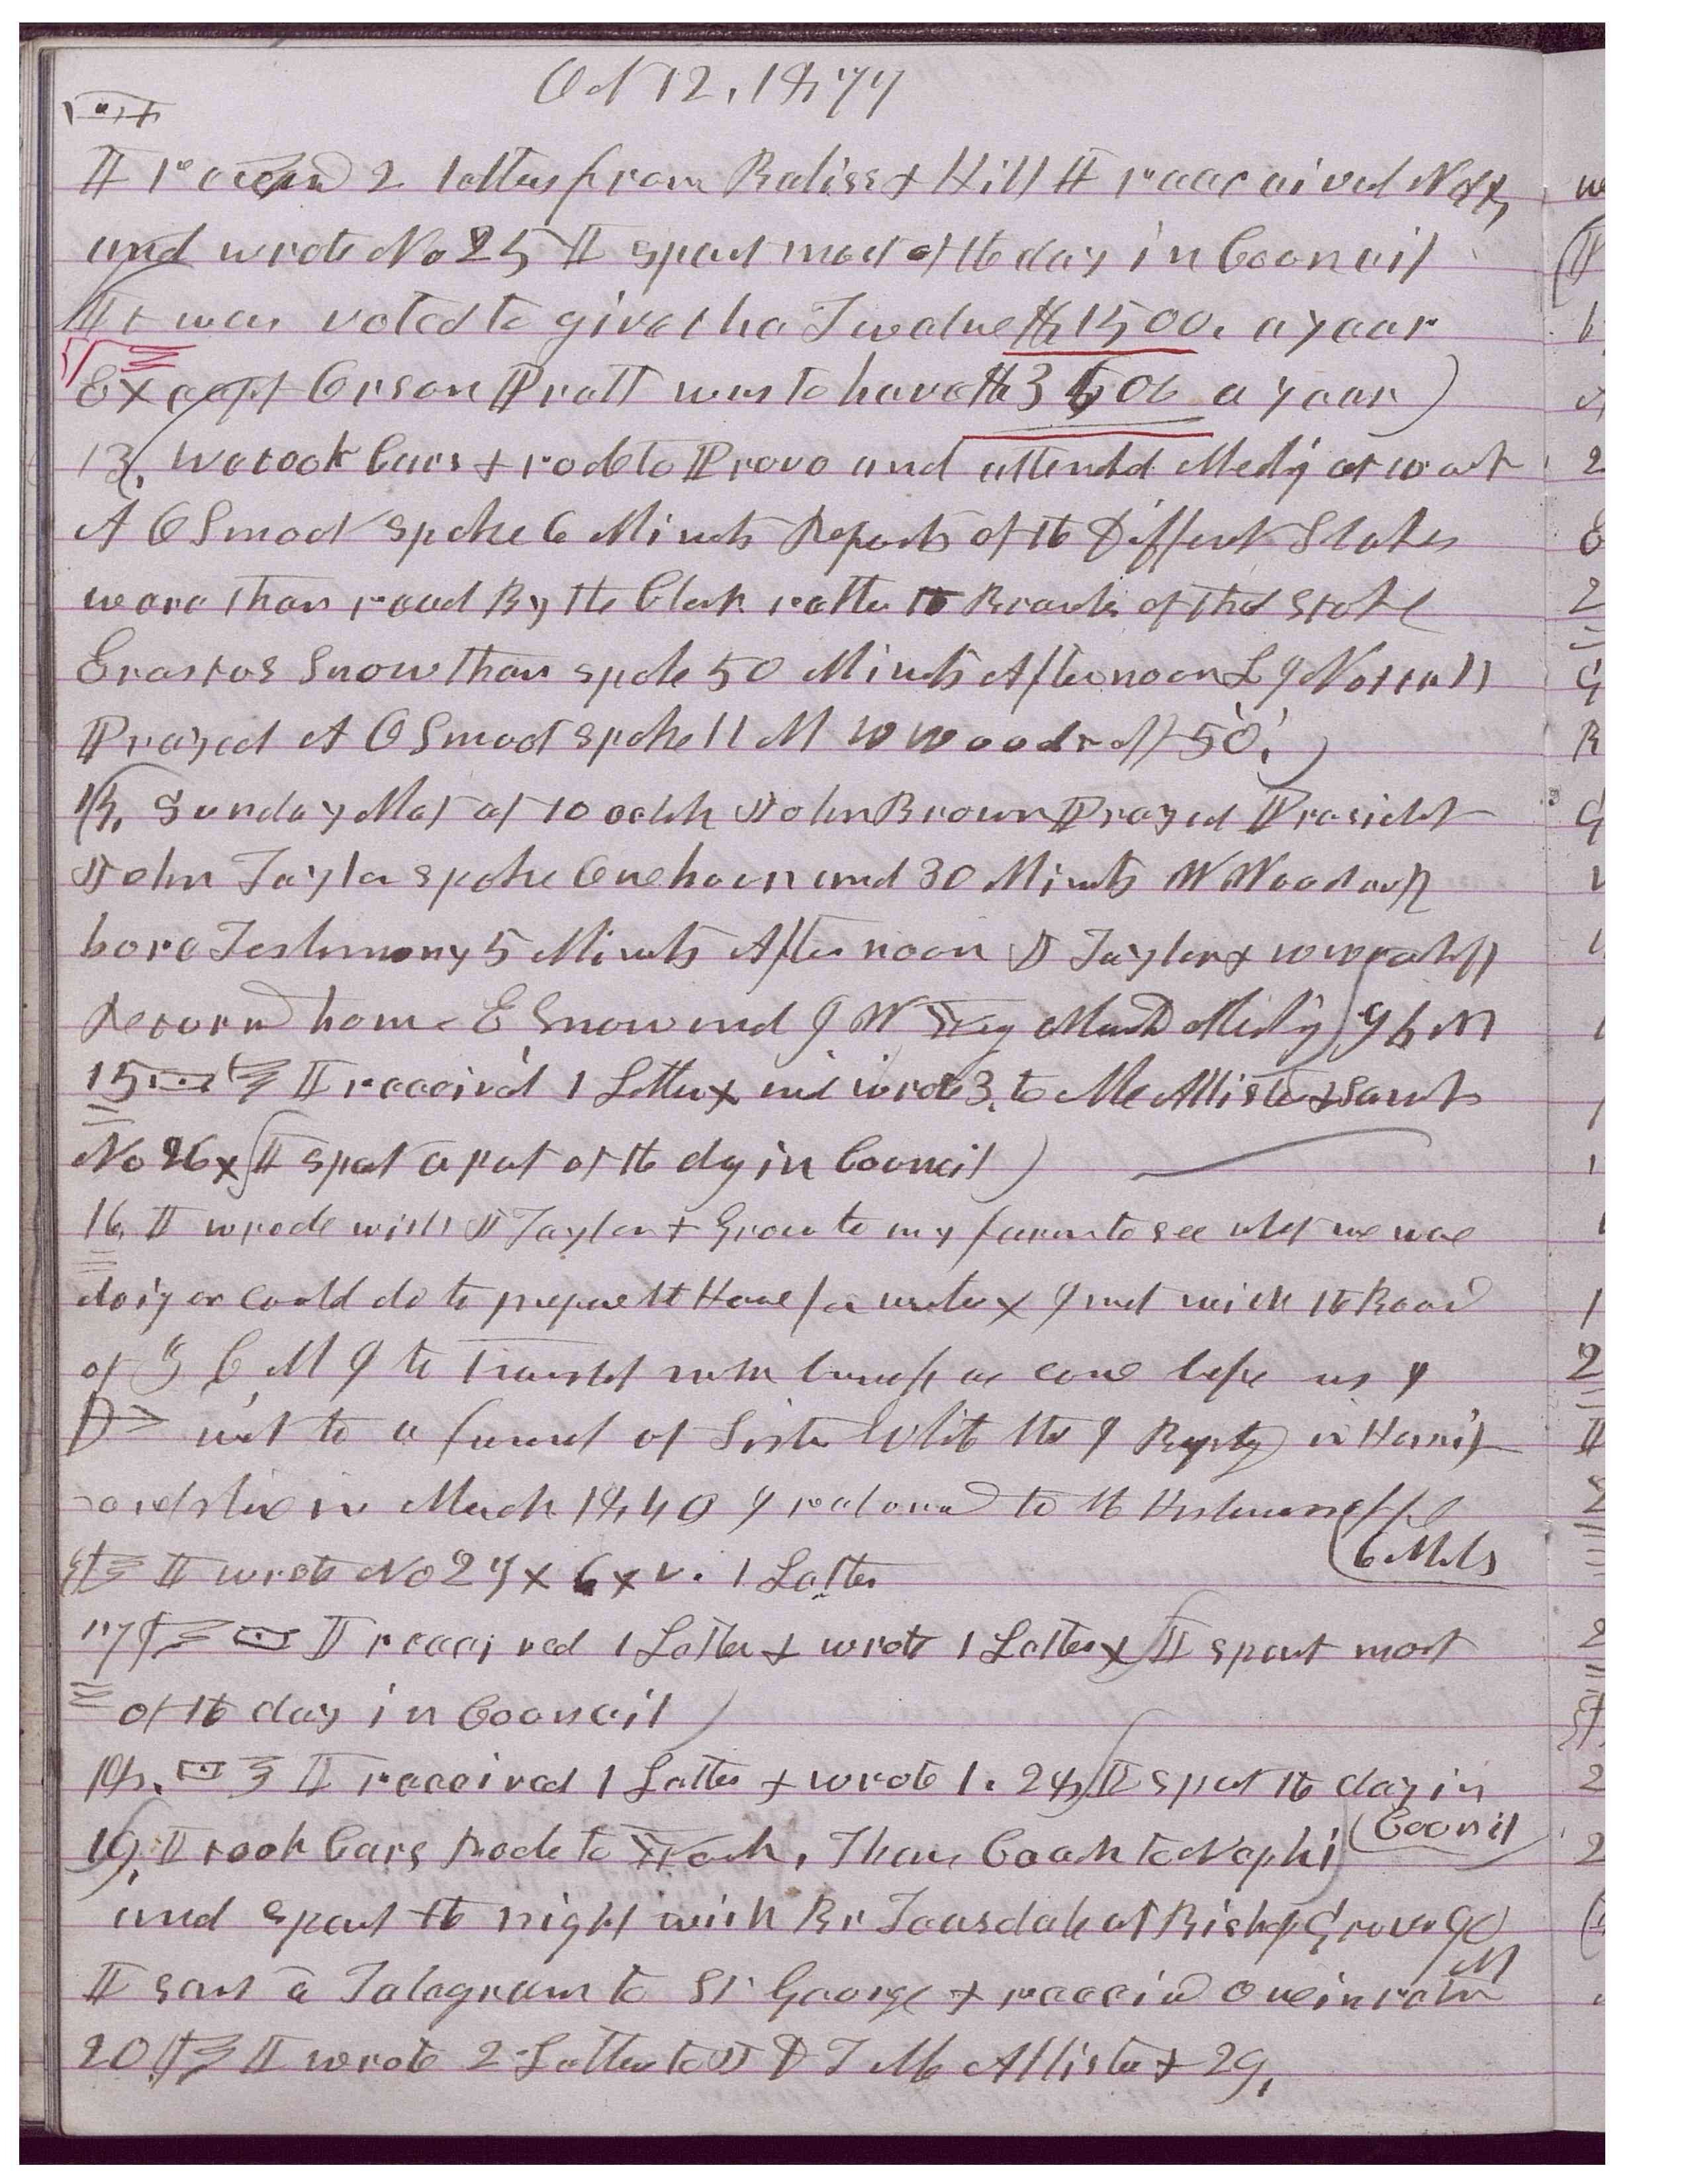 Oct 12, 1877
I receivd 2 letters from Bulis + Hill I receeived No X
and wrote No 25 I spent most of the day in Council
It was voted to give the Twelve $1500. a year
Except Orson Pratt was to have $3500 a year)
13, We took Cars + rode to Provo and attended Meeting at
A O Smoot spoke 6 Minuts Reports of the Different Stakes
were then read By the Clerk of the Stake
Erastus Snow then spoke 50 Minuts Afternoon L J Nuttall
Prayed A O Smoot spoke 11 M W Woodruff 50.)
14, Sunday Met at 10 oclok John Brown Prayed President
John Taylor spoke One hour and 30 Minuts W Woodruff
bore Testimony 5 Minuts Afternoon J Taylor + W Woodruff
Returnd home E Snow and F M Held Meeting) 96 M
15 I receeivd 1 Letter X and wrote 3. to McAllister + Sarah
No 26 X I spent a part of the day in Council)
16, I wrode with J Taylor + Grow to my farm to see what we were
doing or could do to prepare the House for winter X I met with the Board
of Z C M I to Transact such buisiness as came before us I
went to a funeral of Sister White that I Baptized in
in March 1840 I returned to the Historians office
I wrote No 27 X 6 X V. 1 Letter
(6 Mils
17 I receeived 1 Letter + wrote 1 Letter X I spent most
of the day in Council)
18. I receeived 1 Letter + wrote 1. 28, I spent the day in
(Council
19, I took Cars Rode to York, Then Coach to Nephi
and spent the night with Br Teasdale at Bishop Grover 90
M
I sent a Telegram to St George + receeivd One in return
20 I wrote 2 Letters to J D T McAllister + 29,